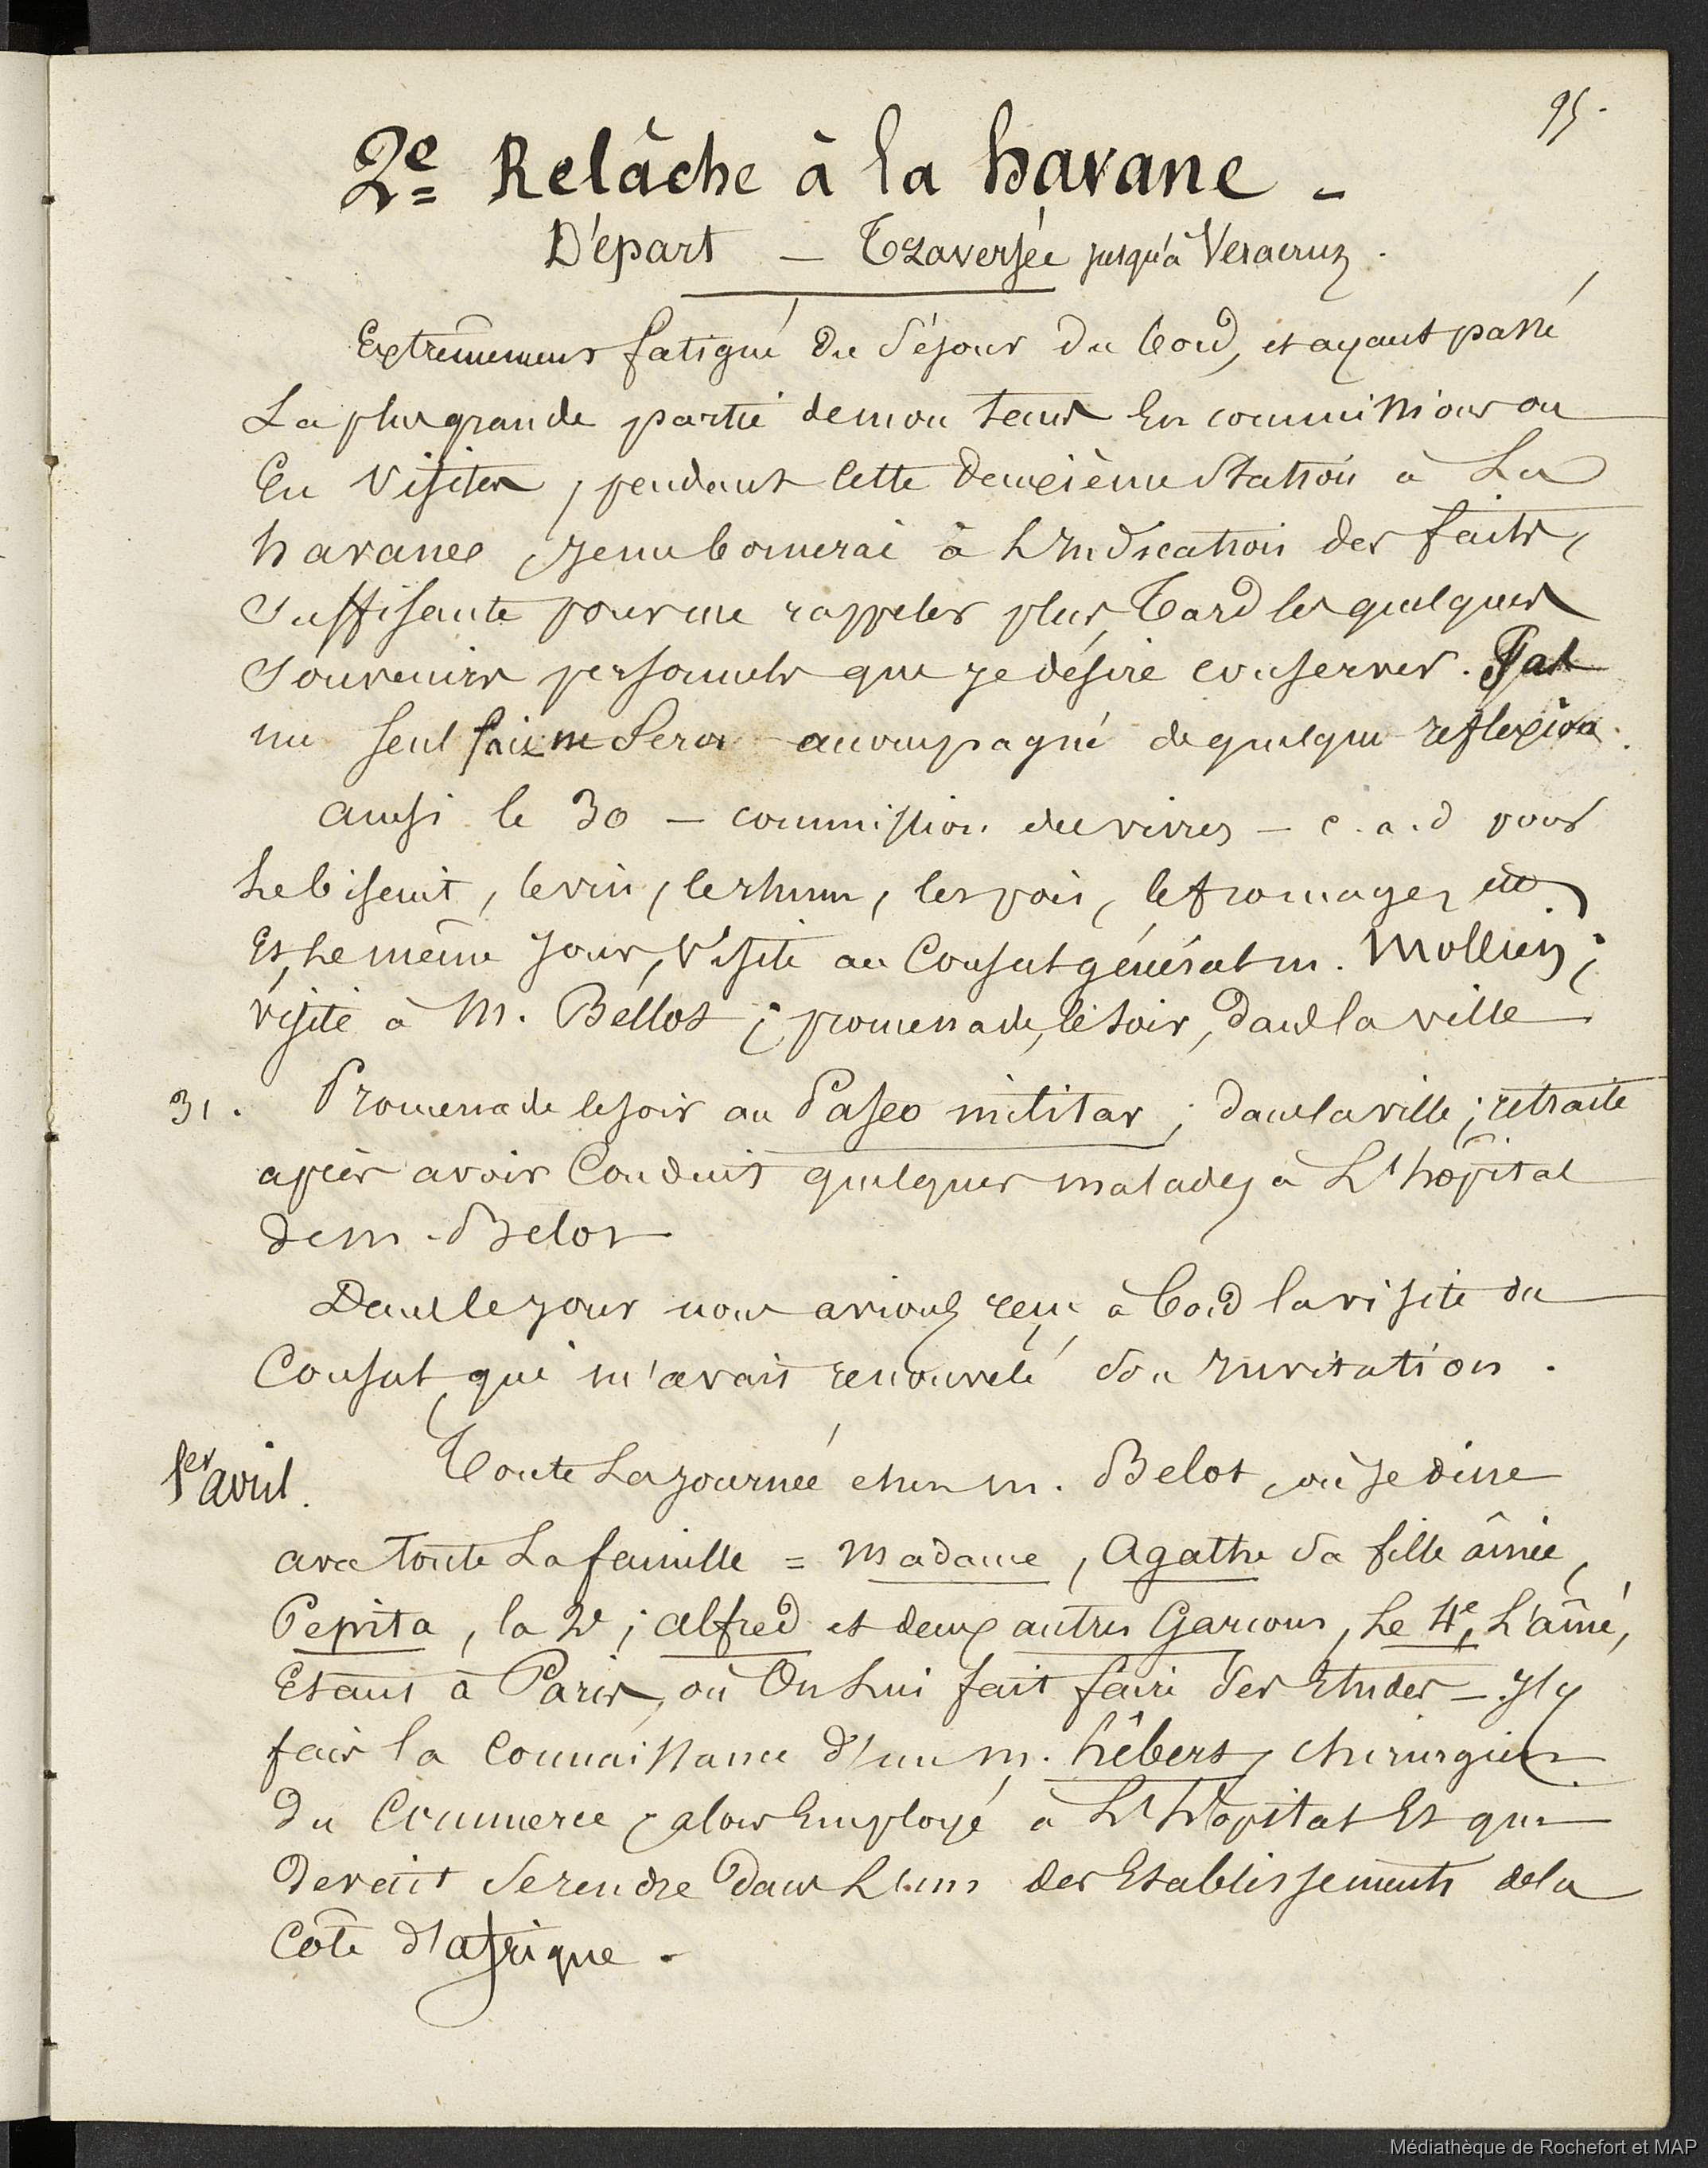 95.
2e Relâche à la havane -
Départ - Traversée jusqu'à Veracruz.
Extrêmement fatigué du séjour du bord, et ayant passé
La plus grande partie de mon tems En commissions ou
En Visites, pendant cette deuxième Station à La
havanee, je me bornerai à L'Indication des faits,
suffisante pour me rappeler plus Tard les quelques
souvenirs personnels que je désire conserver. Pas
un seul fait ne sera accompagné de quelque reflexion.
ainsi le 30 - commission des vivres - c.a.d pour
Le biscuit, le vin, le rhum, les pois, le fromage, etc.
Et, Le même jour, Visite au Consul général m. Mollien ;
visite à M. Bellot ; promenade, le soir, dans la ville
31. Promenade le soir au Paseo militar ; dans la ville ; retraite
après avoir Conduit quelques malades à L'hôpital
de m. Belot
Dans le jour nous avions reçu à bord la visite du
Consul, qui m'avait renouvelé son Invitation.
1er avril. Toute La journée chez m. Belot, où je dine
avec toute La famille = Madame, Agathe sa fille aînée,
Pepita, la 2e ; alfred et deux autres Garçons, Le 4e, L'aîné,
Etant à Paris, où On Lui fait faire des Etudes - J'y
fais la Connaissance d'un m. hêbert, chirurgien
du Commerce, alors Employé à L'hôpital Et qui
devait se rendre dans L'un des Etablissements de la
Côte d'afrique.
Médiathèque de Rochefort et MAP